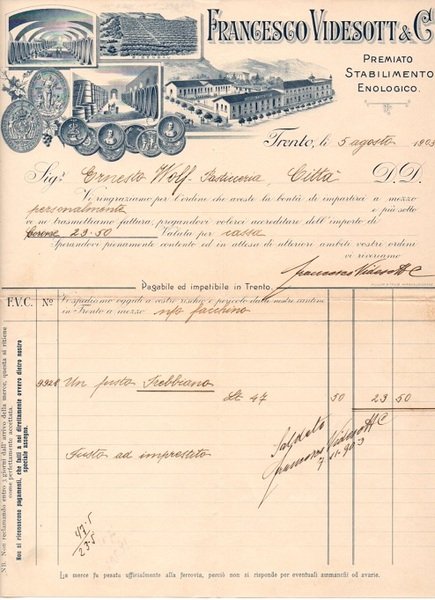 FRANCESCO VIDESOTT & C.
PREMIATO
STABILIMENTO
ENOLOGICO.
Trento, li 5 agosto 1903
Sig. Ernesto Wolf Pasticceria, Città D. D.
Vi ringraziamo per l'ordine che aveste la bontà di impartirci a mezzo
personalmente e più sotto
ve ne trasmettiamo fattura, pregandovi volerci accreditare dell'importo di
Corone 23.50 Valuta per cassa
Sperandovi pienamente contento ed in attesa di ulteriori ambiti vostri ordini
vi riveriamo
Francesco Videsott & C
Pagabile ed impetibile in Trento.
F.V.C. No Vi spediamo oggidì a vostro rischio e pericolo dalle nostre cantine
in Trento a mezzo n/o facchino
9328 Un fusto Trebbiano
Lt 47 50 23 50
Fusto ad imprestito
Saldato
Francesco Videsott & C
7.11.903
47.5
23.5
NB. Non reclamando entro 3 giorni dall'arrivo della merce, questa si ritiene
come perfettamente accettata.
Non si riconoscono pagamenti, che fatti a noi direttamente ovvero dietro nostro
speciale assegno.
La merce fu pesata ufficialmente alla ferrovia, perciò non si risponde per eventuali ammanchi od avarie.